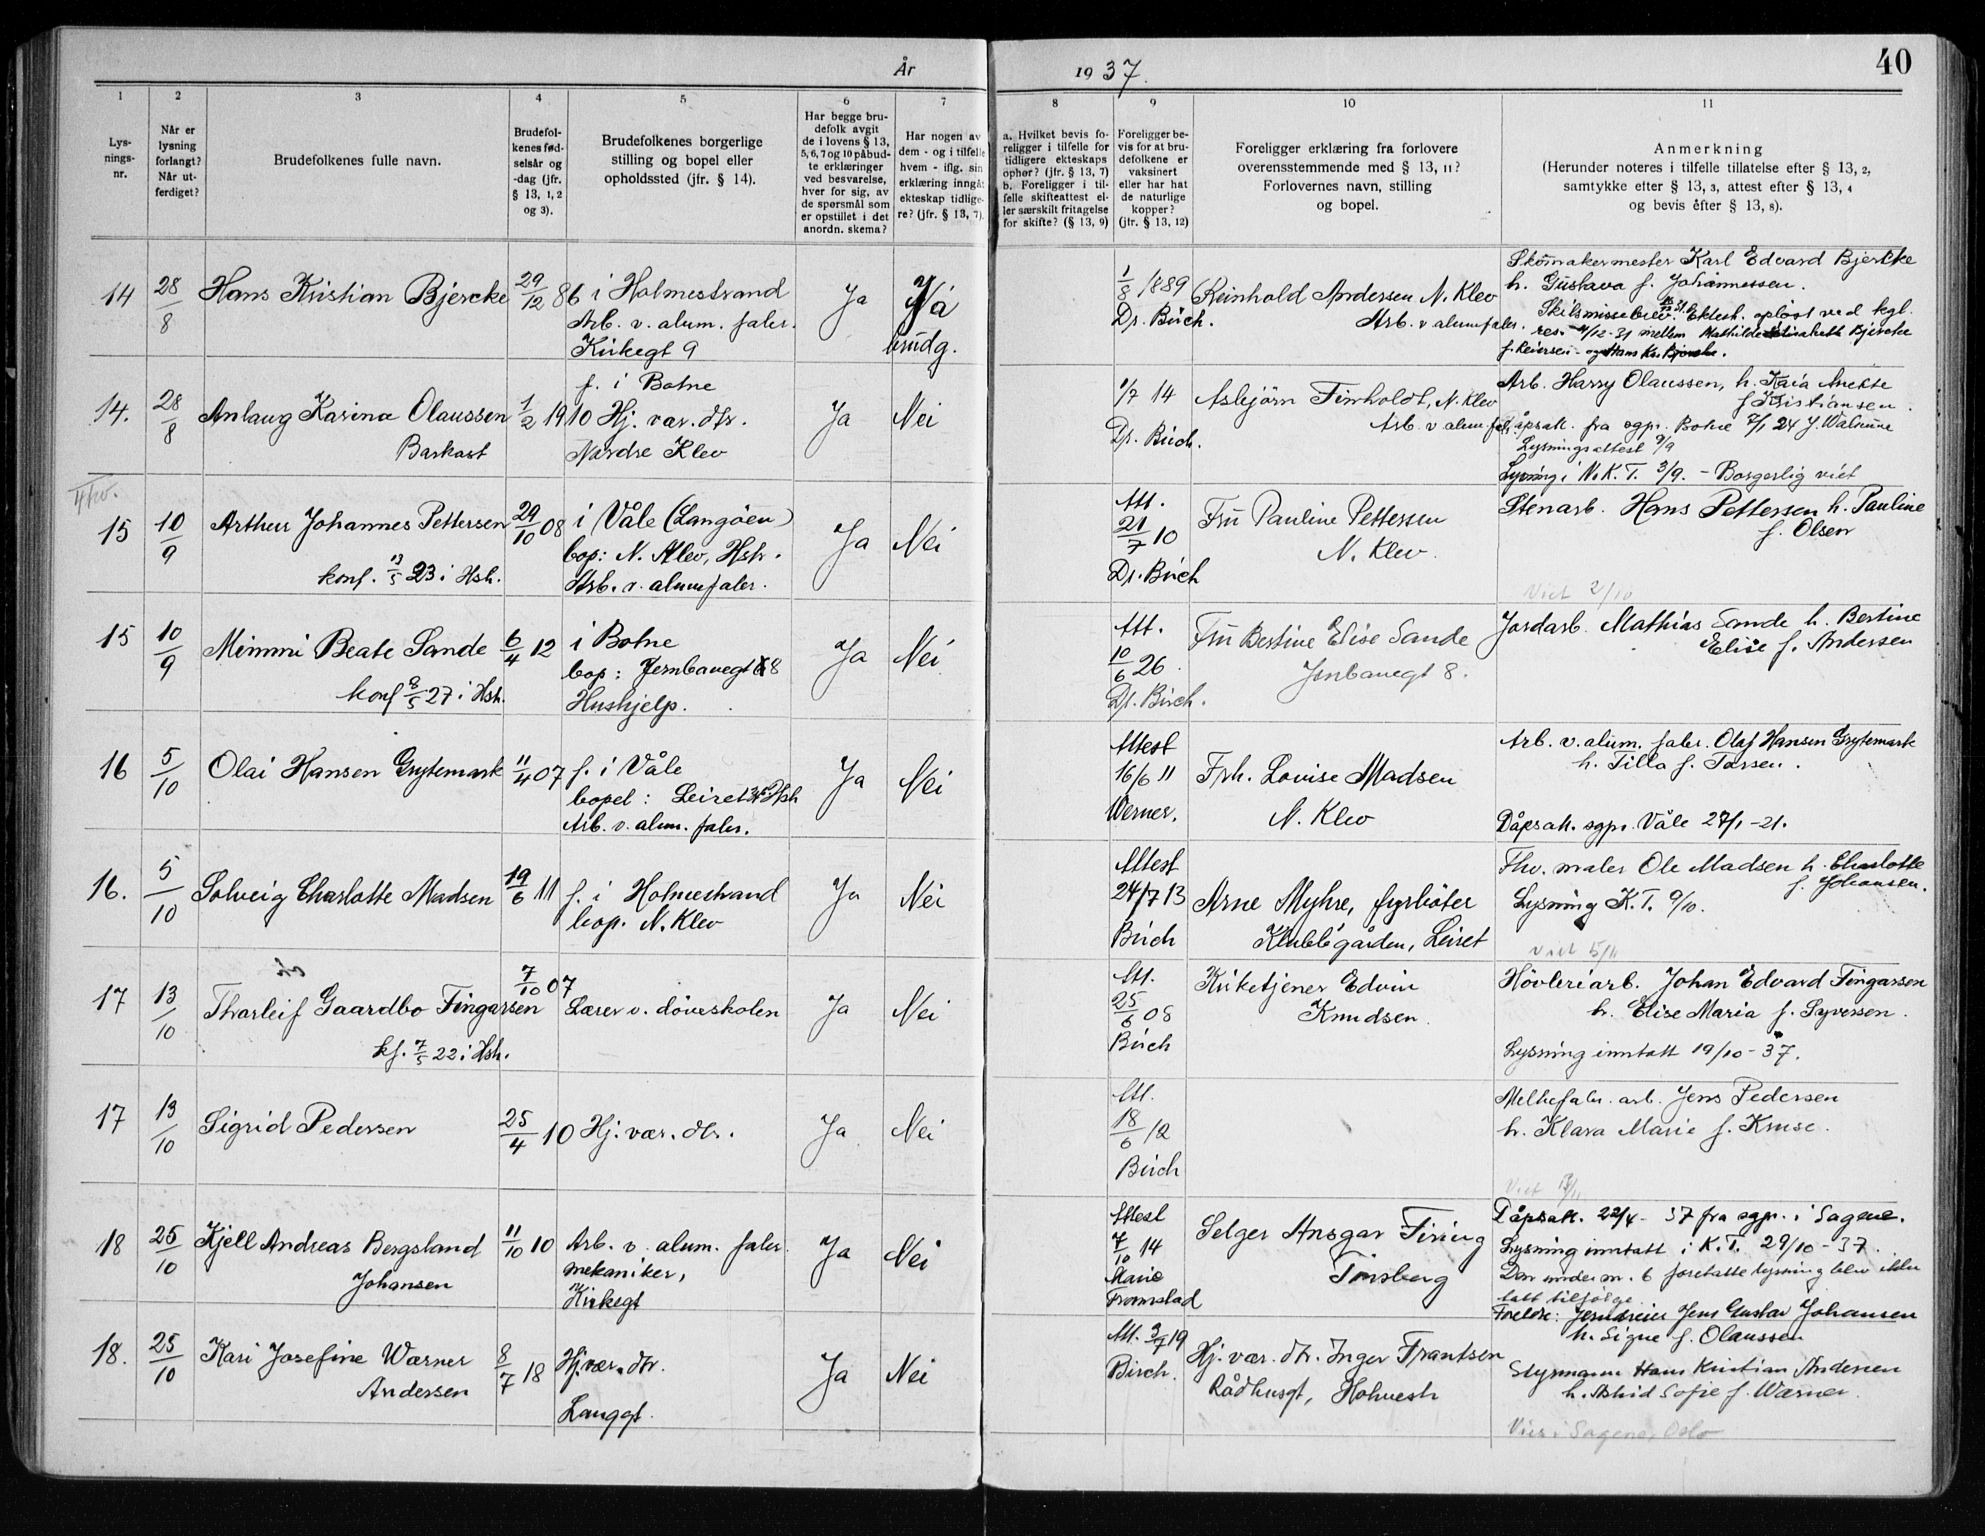 År 1937.
40
1
Lys-
nings-
nr.
2
Når er
lysning
forlangt?
Når ut-
ferdiget?
3
Brudefolkenes fulle navn.
4
Brudefol-
kenes fød-
selsår og
-dag (jfr.
§ 13, 1, 2
og 3).
5
Brudefolkenes borgerlige
stilling og bopel eller
opholdssted (jfr. § 14).
6
Har begge bru-
defolk avgit
de i lovens § 13,
5, 6, 7 og 10 påbud-
te erklæringer
ved besvarelse,
hver for sig, av
de spørsmål som
er opstillet i det
anordn. skema?
7
Har nogen av
dem - og i tilfelle
hvem - iflg. sin
erklæring inngåt
ekteskap tidlige-
re? (jfr. § 13, 7).
8
a. Hvilket bevis fo-
religger i tilfelle for
tidligere ekteskaps
ophør? (jfr. § 13, 7)
b. Foreligger i til-
felle skifteattest el-
ler særskilt fritagelse
for skifte? (§ 13, 9)
9
Foreligger be-
vis for at bru-
defolkene er
vaksinert
eller har hat
de naturlige
kopper?
(jfr. § 13, 12)
10
Foreligger erklæring fra forlovere
overensstemmende med § 13, 11?
Forlovernes navn, stilling
og bopel.
11
Anmerkning
(Herunder noteres i tilfelle tillatelse efter § 13, 2,
samtykke efter § 13, 3, attest efter § 13, 4
og bevis efter § 13, 8).
14
28/8
Hans Kristian Bjercke
29/12 86
i Holmestrand
Arb. v. alum. fabr.
Kirkegt 9
Ja
Ja
brudg.
1/8 1889
Dr. Birch.
Reinhold Andersen N. Klev
Arb. v alumfabr.
Skomakermester Karl Edvard Bjercke
h. Gustava f. Johannessen.
Skilsmissebrev. Ektesk. opløst ved kgl.
res. 4/12-31 mellem Mathilde Elisabeth Bjercke
f. Reiersen - og Hans Kr. Bjercke.
14.
28/8
Anlaug Karina Olaussen
Barkost
1/2 1910
f. i Botne
Hj. vær. dtr.
Nordre Klev
Ja
Nei
1/7 14
Dr. Birch.
Asbjørn Finholdt, N. Klev
Arb. v alumfabr.
Arb. Harry Olaussen, h. Kaia Anette
f Kristiansen.
Dåpsatt. fra sgpr. Botne 7/1 24
Lysningsattest 9/9
Lysning i N. K. T. 3/9. - Borgerlig viet
15
10/9
Arthur Johannes Pettersen
konf. 13/5 23 i Hstr.
29/10 08
i Våle (Langøen)
bop: N. Klev, Hstr.
Arb. v. alumfabr.
Ja
Nei
Att.
21/7 10
Dr. Birch
Fru Pauline Pettersen
N. Klev.
Stenarb. Hans Pettersen h. Pauline
f. Olsen
Viet 2/10
15
10/9
Mimmi Beate Sande
konf 8/5 27 i Hstr.
6/4 12
i Botne
bop: Jernbanegt 8
Hushjelp.
Ja
Nei
Att.
10/6 26.
Dr. Birch.
Fru Bertine Elise Sande
Jernbanegt 8.
Jordarb. Mathias Sande h. Bertine
Elise f. Andersen
16
5/10
Olai Hansen Grytemark
11/4 07
f. i Våle
bopel: Leiret Hstr
Arb. v. alum. fabr.
Ja
Nei
Attest
16/6 11
Werner.
Frk. Louise Madsen
N. Klev
Arb. v. alum. fabr. Olaf Hansen Grytemark
h. Tilla f. Tarsen.
Dåpsatt. sgpr. Våle 27/1-21.
16.
5/10
Solveig Charlotte Madsen
19/6 11
f. i Holmestrand
bop. N. Klev
Ja
Nei
Attest
24/7 13
Birch
Arne Myhre, fyrbøter
Klubbgården, Leiret
Fhv. maler Ole Madsen h. Charlotte
f. Johansen.
Lysning K. T. 9/10.
Viet 5/11
17
13/10
Thorleif Gaardbo Fingarsen
kf. 7/5 22 i Hstr.
7/10 07
Lærer v. døveskolen
Ja
Nei
Att.
25/6 08
Birch
Kirketjener Edvin
Knudsen.
Høvleriarb. Johan Edvard Fingarsen
h. Elise Maria f. Syversen.
Lysning inntatt 19/10-37.
17
13/10
Sigrid Pedersen
25/4 10
Hj. vær. dtr.
Ja
Nei
Att.
18/6 12
Birch
Melkefabr. arb. Jens Pedersen
h. Klara Marie f. Kruse.
Viet
18
25/10
Kjell Andreas Bergsland
Johansen
11/10 10
Arb. v. alum. fabr.
mekaniker,
Kirkegt
Ja
Nei
Attest
7/10 14
Marie
Fromstad
Selger Ansgar Firing
Tønsberg
Dåpsatt. 22/4-37 fra sgpr. i Sagene.
Lysning inntatt i K. T. 29/10-37.
Den under nr. 6 foretatte lysning blev ikke
tatt tilfølge
Foreldr: Jens Gustav Johansen
h. Signe f. Olaussen
18.
25/10
Kari Josefine Wærner
Andersen
8/7 18
Hj. vær. dtr.
Langgt.
Ja
Nei
Att. 3/9 19
Birch.
Hj. vær. dtr. Inger Frantsen
Rådhusgt, Holmestr
Styrmann Hans Kristian Andersen
h. Astrid Sofie f. Wærner.
Vies i Sagene, Oslo